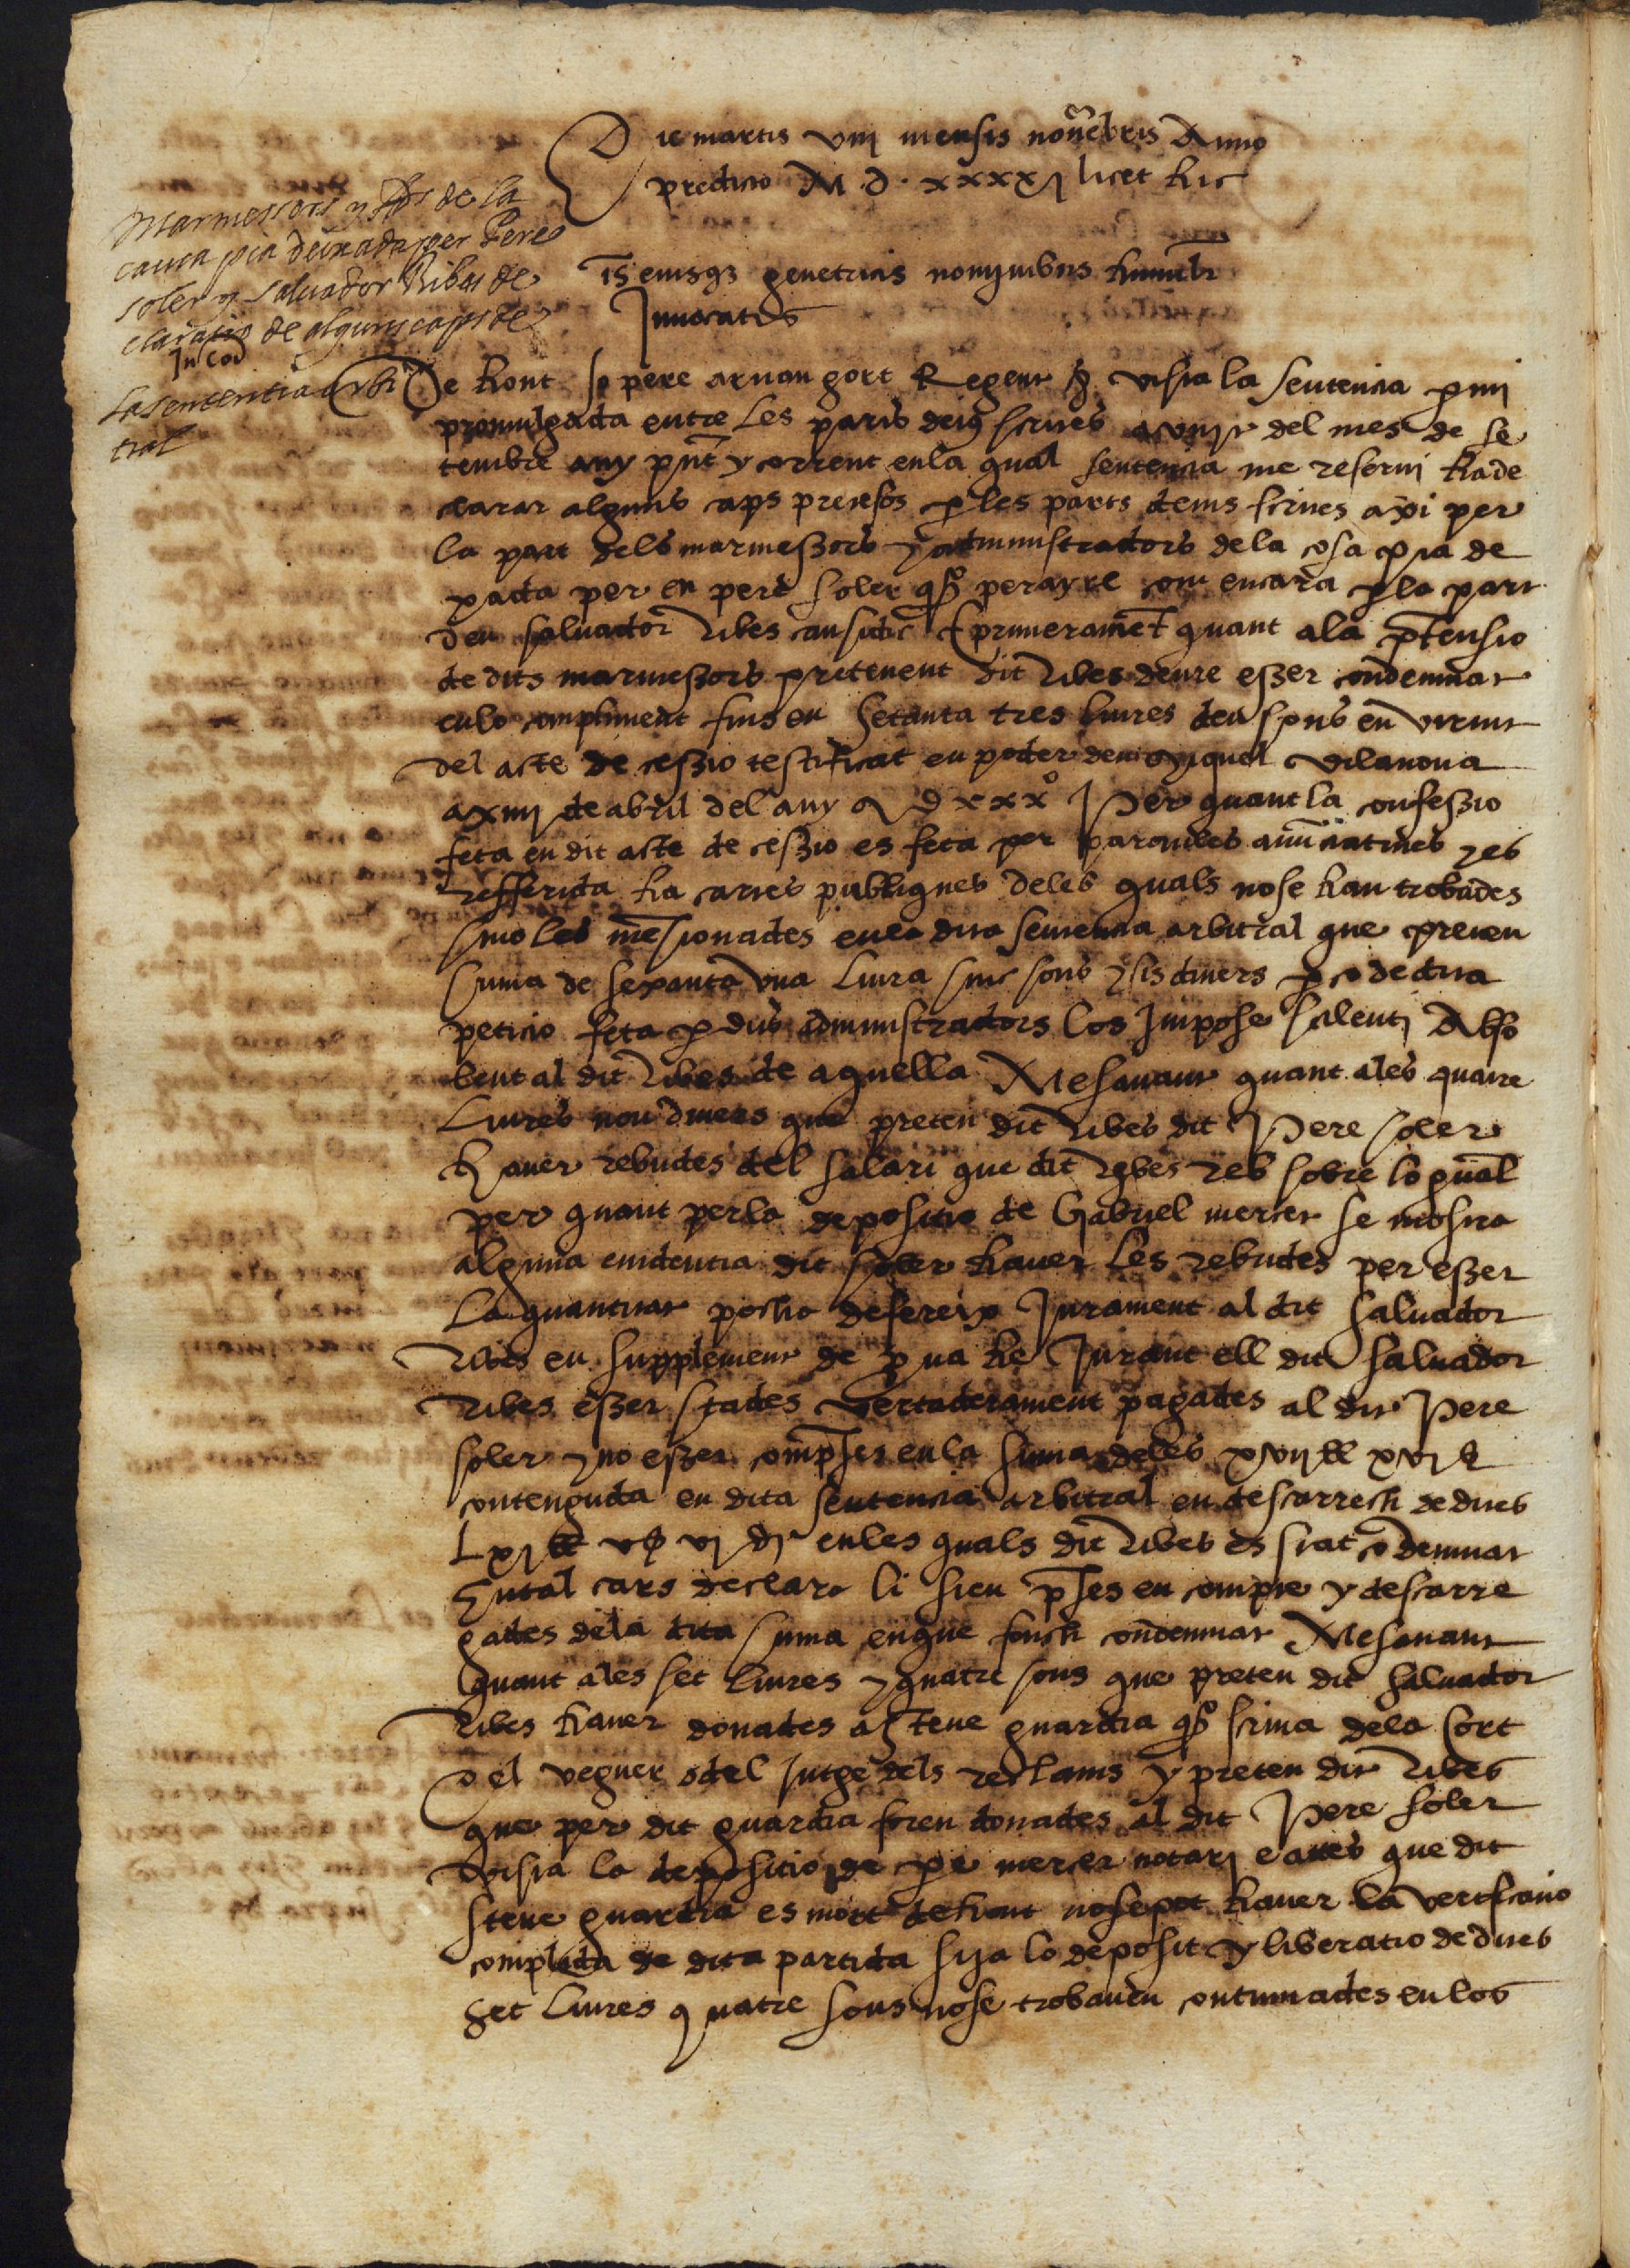 Die martis viij mensis nouēbris Anno
predicto M d xxxxj licet hic
Marmessors y de la
causa pia deixada per Pere
soler y saluador Ribes de
claratio de alguns caps de
In cod
La sententia arbi
tral
is eiusq3 genetricis nominibus humilr
Inuocatis
e hont. so pere Regent visa la sentencia p mi
promulgada entre les parts deius scrites a del mes de se
tembre any pnt y corrent en la qual sentencia me reserui ha de
clarar alguns caps pretesos p les parts deius scrites axi per
la part dels marmessors y administradors de la cosa pia de
xada per en pere soler qo perayre com encara p la part
den saluador ribes causidic E primeramēt quant a la ptensio
de dits marmessors pretenent dit ribes deure esser condemnat
en lo compliment fins en setanta tres liures deu sous en virtut
del acte de cessio testificat en poder den miquel vilanoua
a xiiij de abril del any M d xxxo Per quant la confessio
feta en dit acte de cessio es feta per paraules anūciatiues y es
refferida ha cartes publiques de les quals no se han trobades
sino les mēsionades en la dita sentencia arbitral que prenen
suma de sexanta vna liura sinc sous y sis diners p ço de dita
peticio feta p dits administradors los impose silenti Abso
lent al dit ribes de aquella Mes auant quant a les quatre
liures nou diners que preten dit ribes dit Pere soler
hauer rebudes del salari que dit ribes reb sobre lo qual
per quant per la depositio de Gabriel mercer se mostra
alguna euidentia dit soler hauer les rebudes per esser
la quantitat pocha defereix jurament al dit saluador
ribes en supplement de p ua he jurant ell dit saluador
ribes esser stades vertaderament pagades al dit Pere
soler y no esser compses en la suma de les xvij ll xvj s
contenguda en dita sentencia arbitral en descarrech de dites
Lxj ll v s vj dr en les quals dit ribes es stat cōdemnat
En tal cars declara li sien pses en compte y descarre
gades de la dita suma en que fonch condemnat Mes auant
quant a les set liures y quatre sous que preten dit saluador
ribes hauer donades a steue guardia qo scriua de la cort
del veguer o del jutge dels reclams y preten dit ribes
que per dit guardia foren donades al dit Pere soler
vista la depositio de pe mercer notarj e ates que dit
steue guardia es mort de hont no se pot hauer la verificatio
complida de dita partida si ja lo deposit y liberatio de dites
set liures quatre sous no se trobauen continuades en los